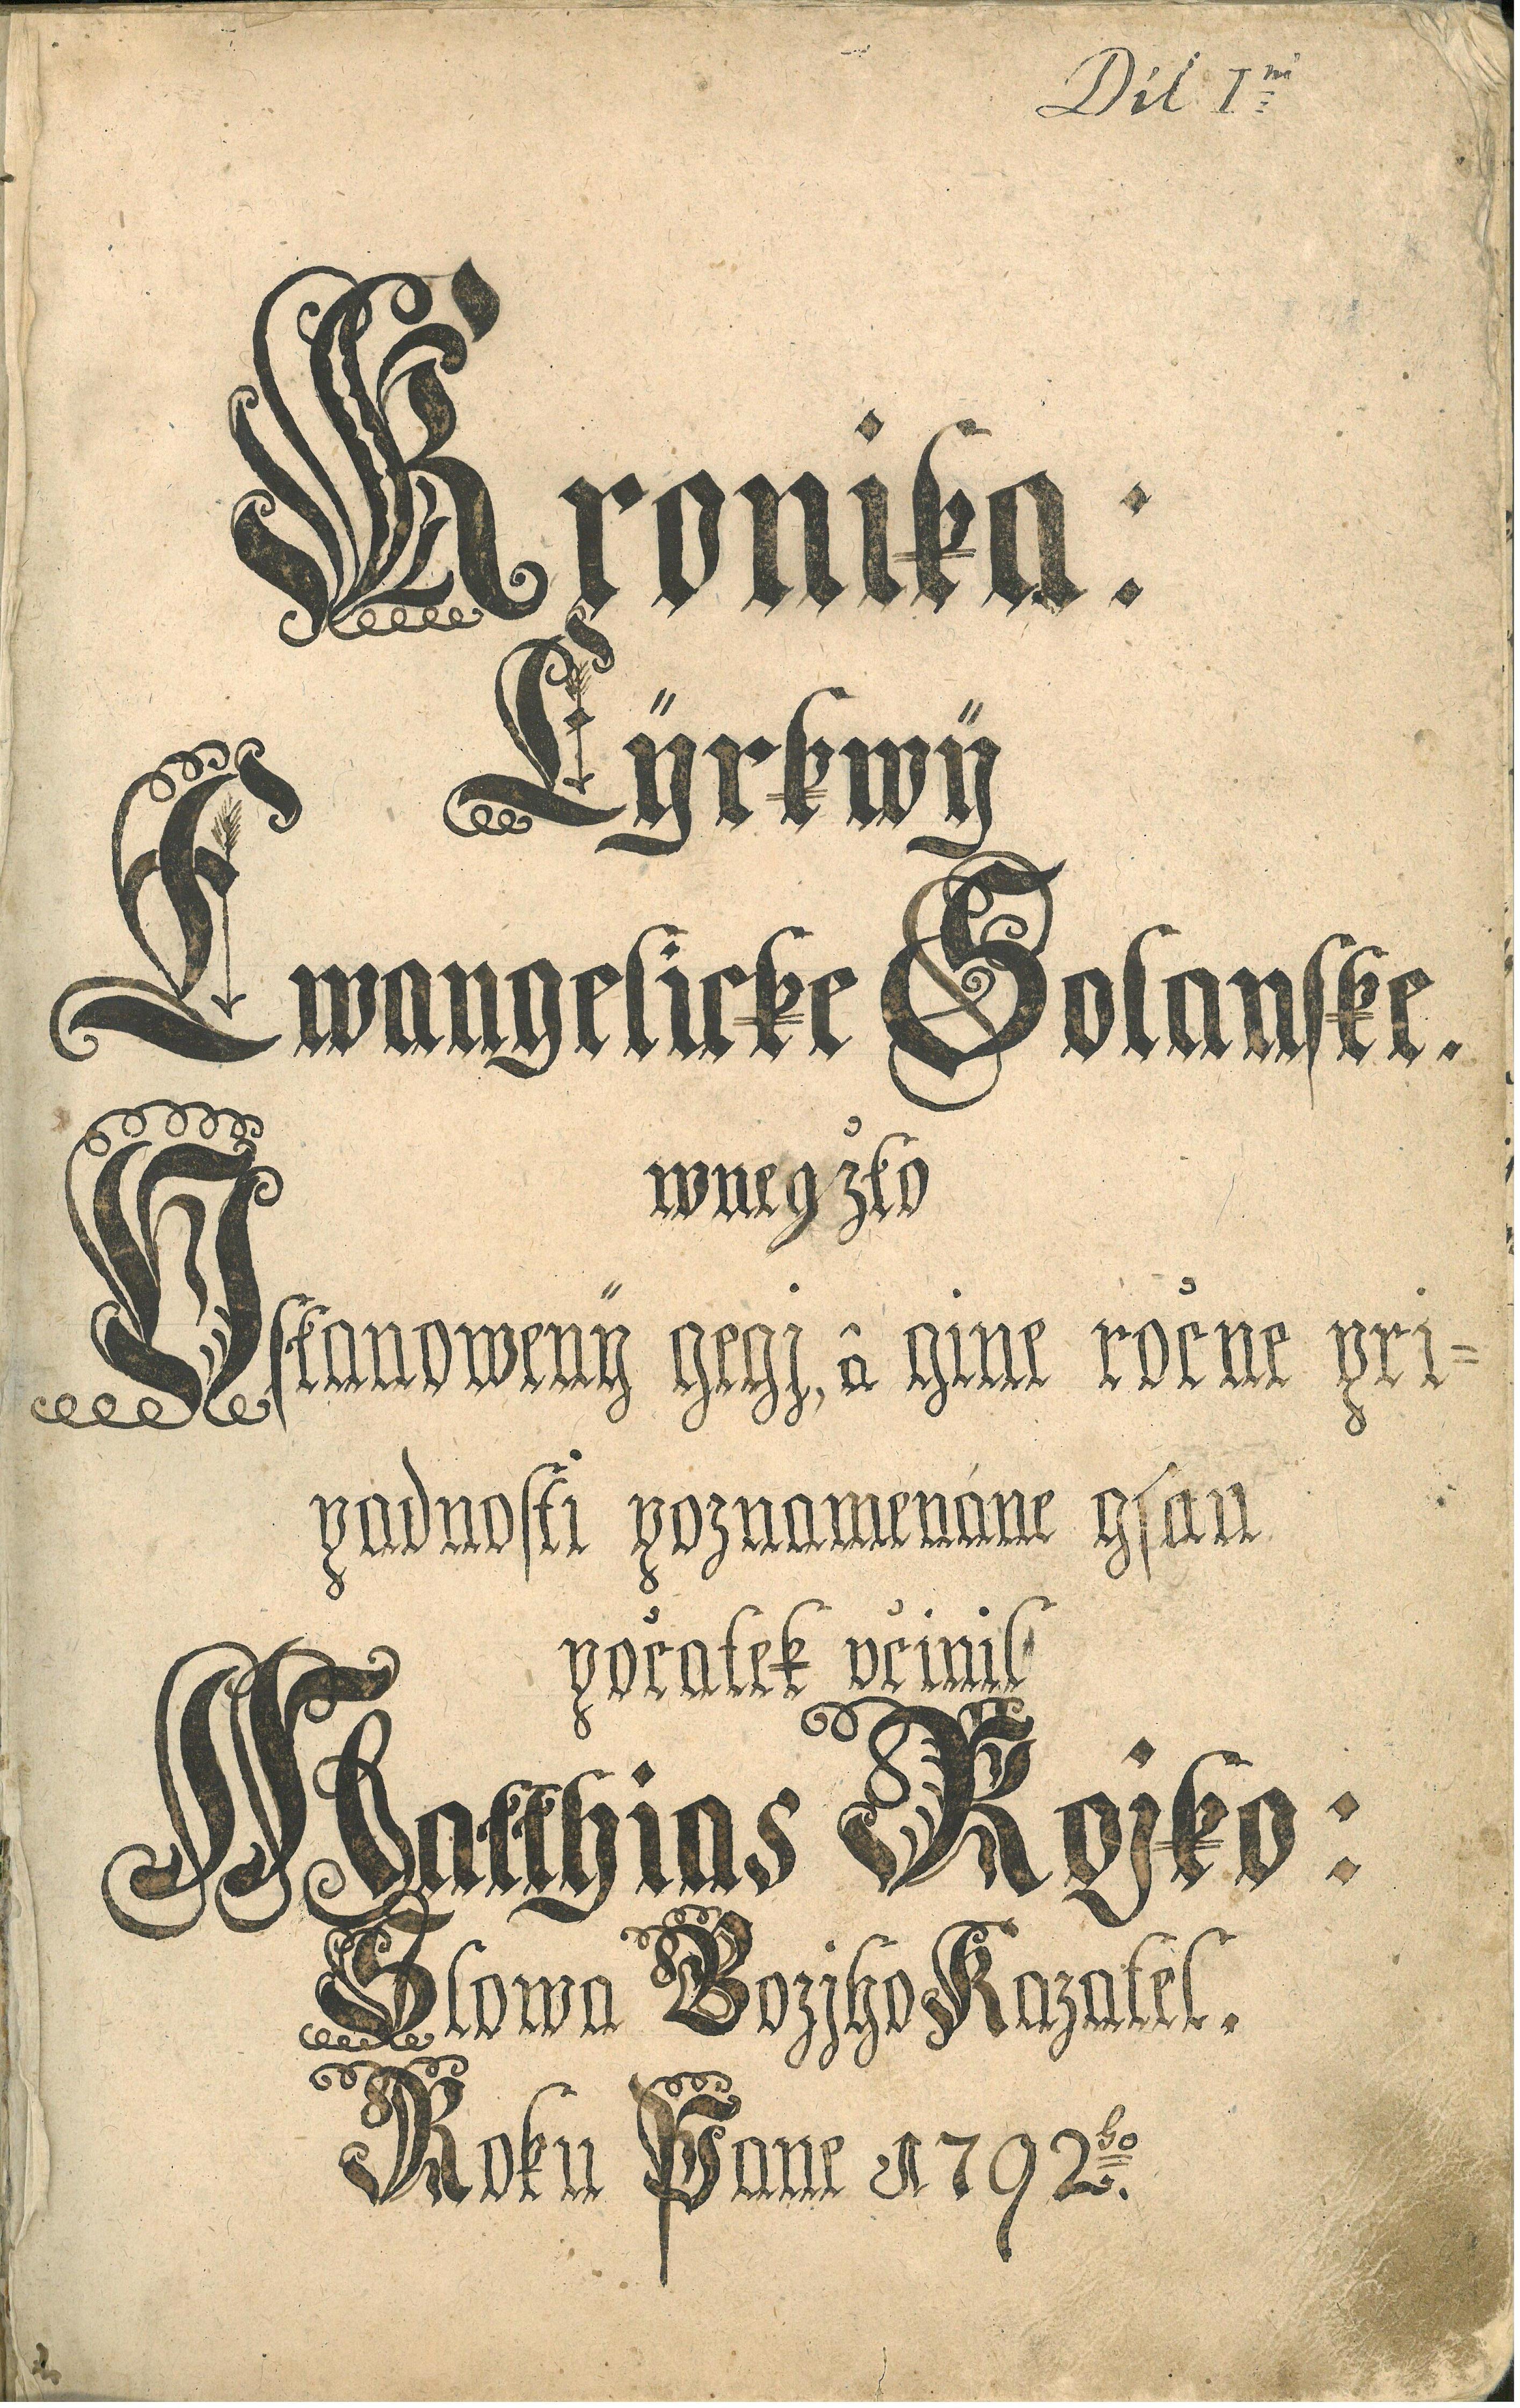 Díl I^ní
Kronika:
Cÿrkwÿ
Ewangelicke Solanske.
wnegžto
Ustanowenÿ gegj, â gine ročne pri=
padnosti poznamenáne gsau
počatek včinil
Matthias Rojko:
Slowa Bozjho Kazatel.
Roku Pane 1792^ho.